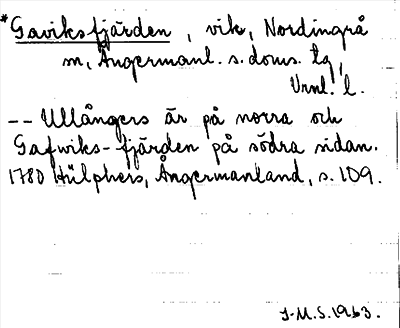 *Gaviksfjärden, vik, Nordingrå
m, Ångermanl. s. doms. tg,
Vrnl. l.
-- Ullångers är på norra och
Gafwiks-fjärden på södra sidan.
1780 Hülphers, Ångermanland, s. 109.
J-M.S. 1963.